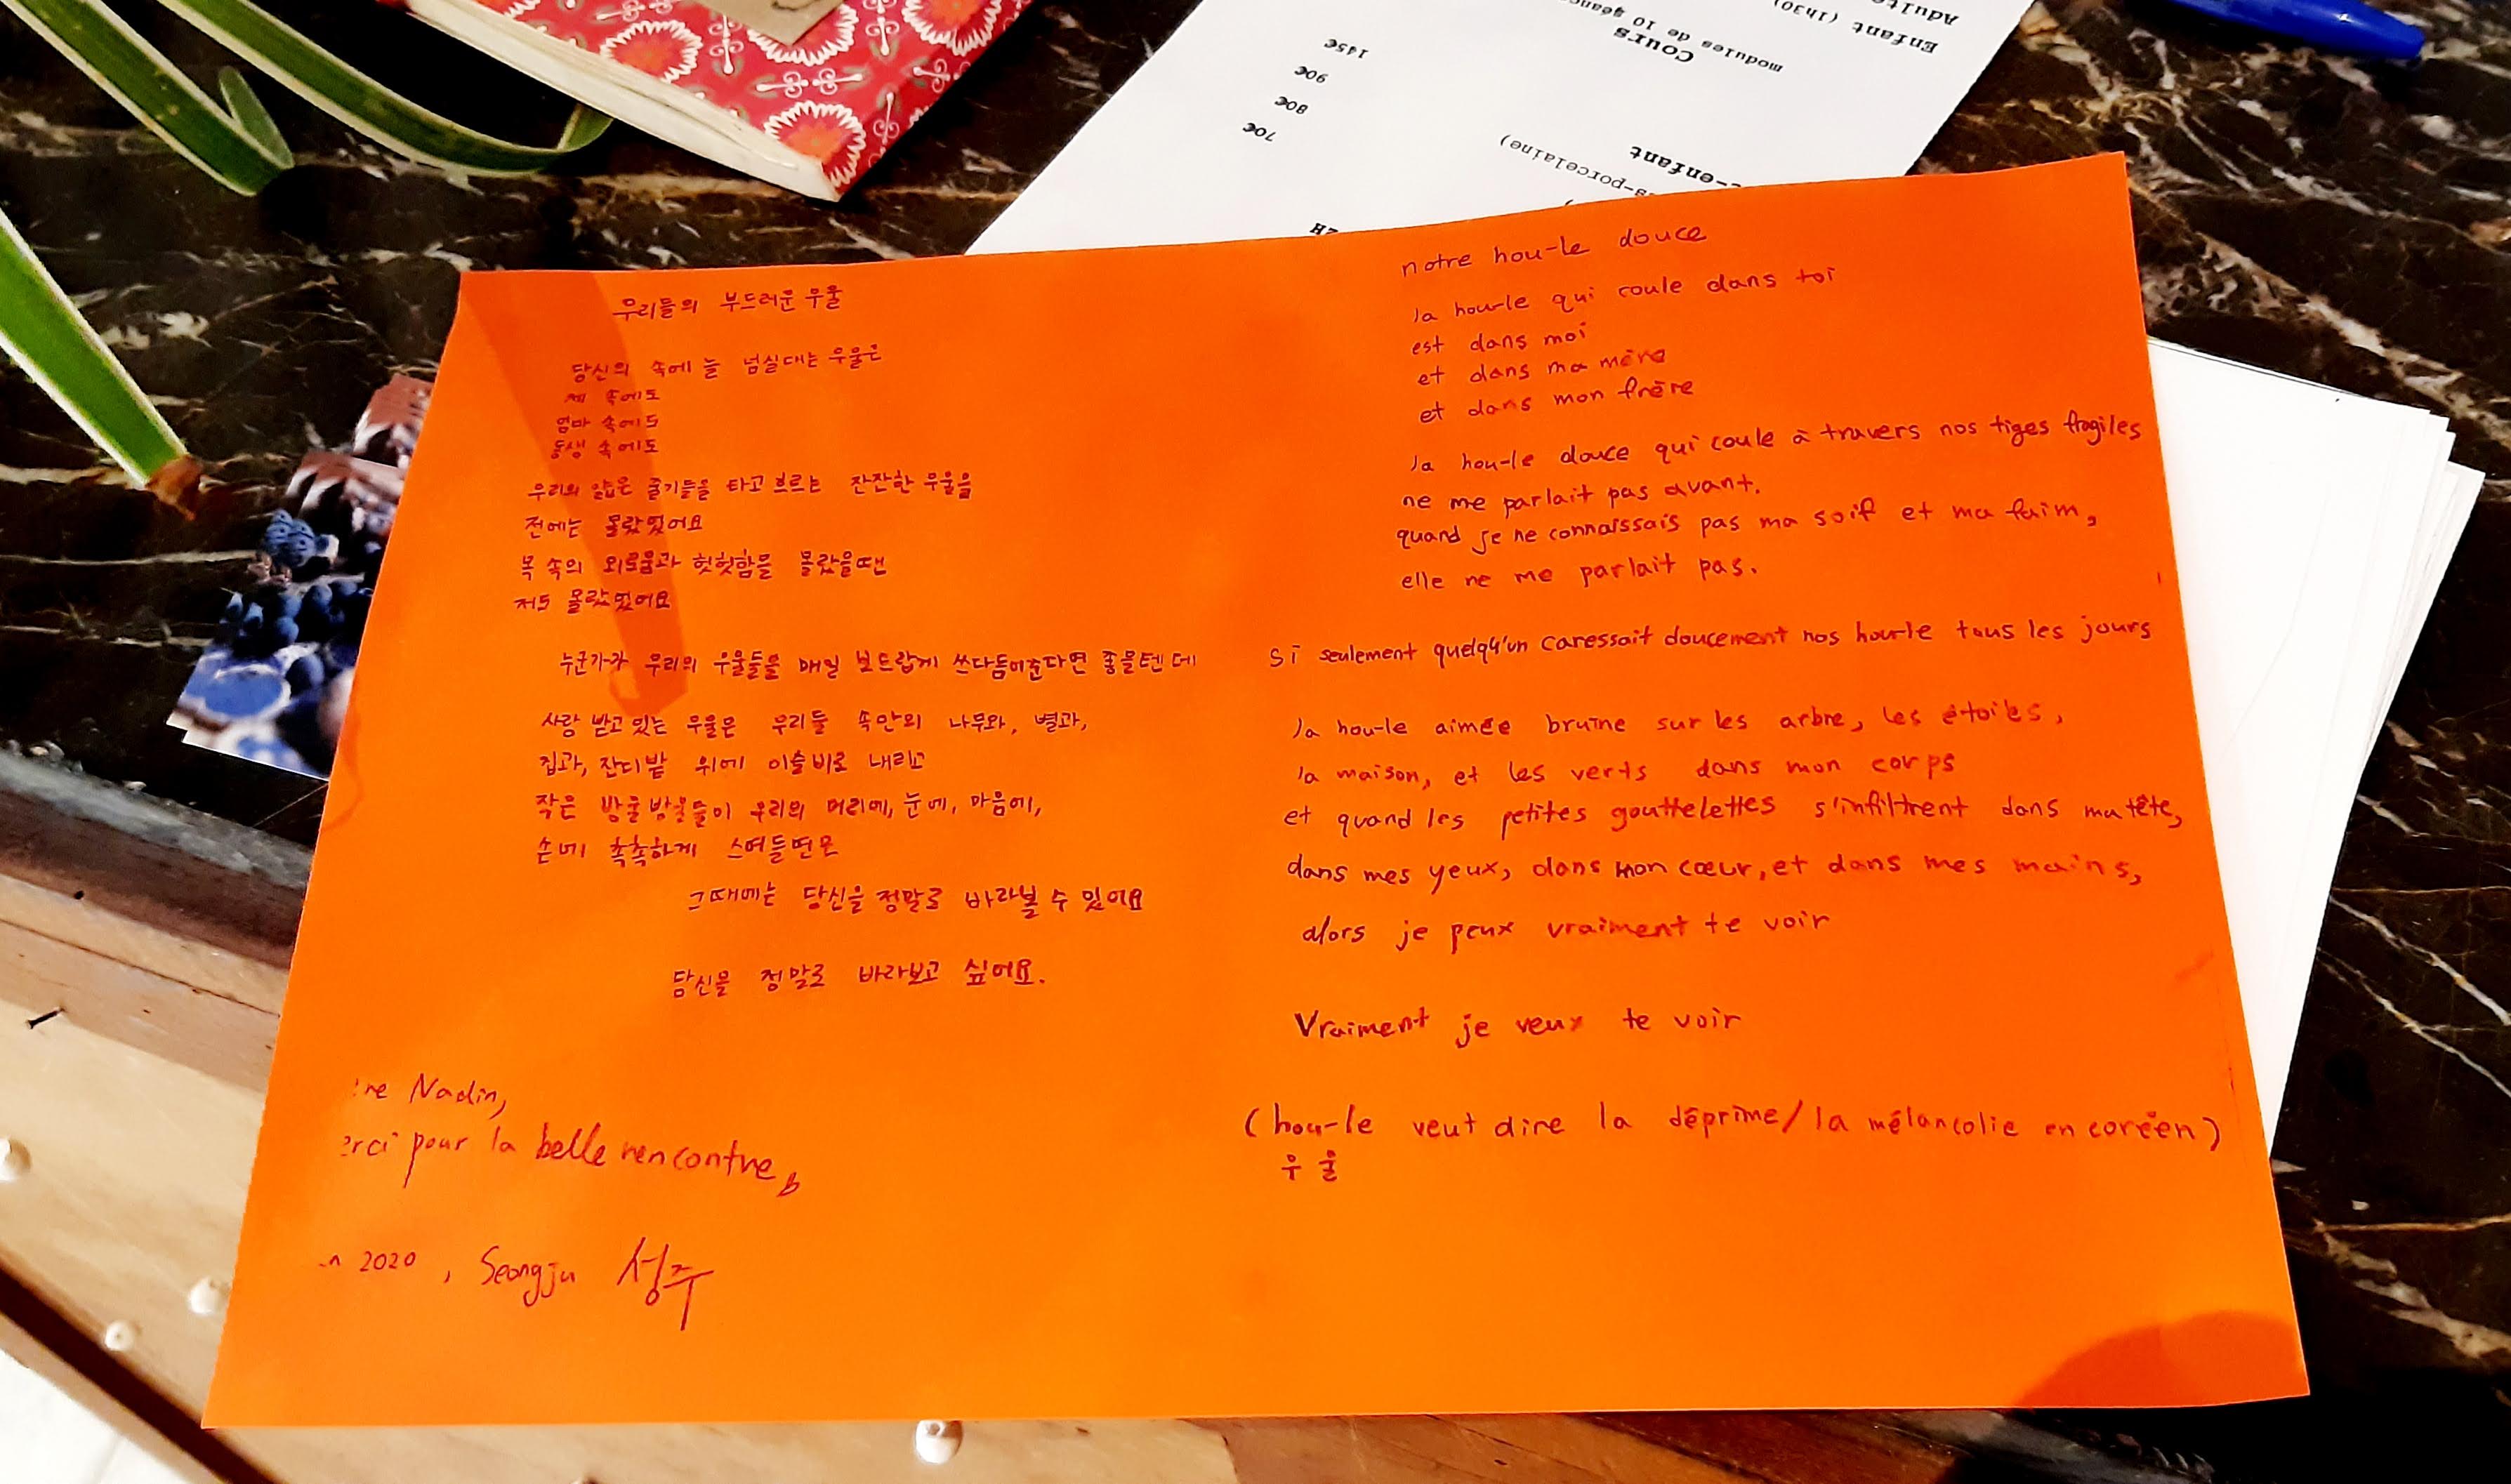 Adulte
Enfant (1h30)
Cours
modules de 10
145€
90€
80€
70€
-enfant
-porcelaine)
우리들의 부드러운 우울
당신의 속에 늘 넘실대는 우울은
제 속에도
엄마 속에도
동생 속에도
우리의 얇은 줄기들을 타고 흐르는 잔잔한 우울을
전에는 몰랐었어요
목 속의 외로움과 헛헛함을 몰랐을땐
저도 몰랐었어요
누군가가 우리의 우울들을 매일 보드랍게 쓰다듬어준다면 좋을텐데
사랑 받고 있는 우울은 우리들 속안의 나무와, 별과,
집과, 잔디밭 위에 이슬비로 내리고
작은 방울방울들이 우리의 머리에, 눈에, 마음에,
손에 촉촉하게 스며들면은
그때에는 당신을 정말로 바라볼 수 있어요
당신을 정말로 바라보고 싶어요.
Nadin,
pour la belle rencontre,
2020, Seongju 성주
notre hou-le douce
la hou-le qui coule dans toi
est dans moi
et dans ma mère
et dans mon frère
la hou-le douce qui coule à travers nos tiges fragiles
ne me parlait pas avant.
quand je ne connaissais pas ma soif et ma faim,
elle ne me parlait pas.
si seulement quelqu'un caressait doucement nos hou-le tous les jours
la hou-le aimée bruine sur les arbre, les étoiles,
la maison, et les verts dans mon corps
et quand les petites gouttelettes s'infiltrent dans ma tête,
dans mes yeux, dans mon cœur, et dans mes mains,
alors je peux vraiment te voir
Vraiment je veux te voir
(hou-le veut dire la déprime/la mélancolie en coréen)
우울